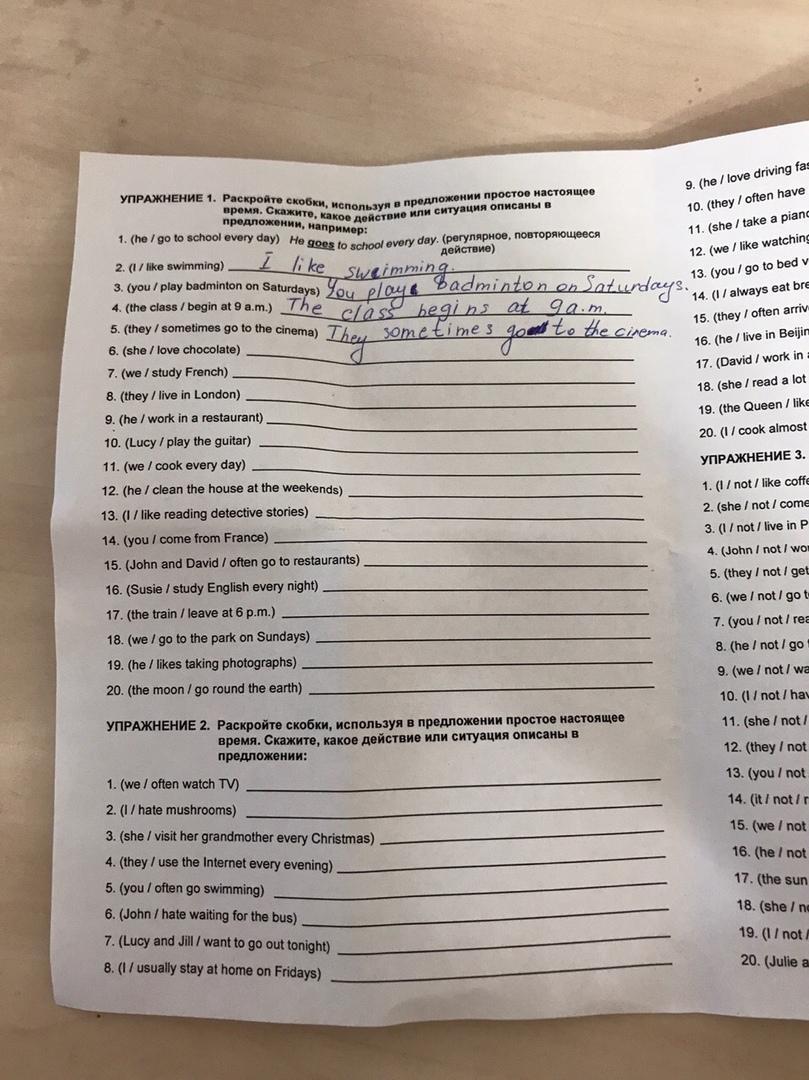 УПРАЖНЕНИЕ 1. Раскройте скобки, используя в предложении простое настоящее
время. Скажите, какое действие или ситуация описаны в
предложении, например:
1. (he / go to school every day) He goes to school every day. (регулярное, повторяющееся
действие)
2. (I / like swimming) I like swimming.
3. (you / play badminton on Saturdays) You play badminton on Saturdays.
4. (the class / begin at 9 a.m.) The class begins at 9 a.m.
5. (they / sometimes go to the cinema) They sometimes go to the cinema.
6. (she / love chocolate)
7. (we / study French)
8. (they / live in London)
9. (he / work in a restaurant)
10. (Lucy / play the guitar)
11. (we / cook every day)
12. (he / clean the house at the weekends)
13. (I / like reading detective stories)
14. (you / come from France)
15. (John and David / often go to restaurants)
16. (Susie / study English every night)
17. (the train / leave at 6 p.m.)
18. (we / go to the park on Sundays)
19. (he / likes taking photographs)
20. (the moon / go round the earth)
УПРАЖНЕНИЕ 2. Раскройте скобки, используя в предложении простое настоящее
время. Скажите, какое действие или ситуация описаны в
предложении:
1. (we / often watch TV)
2. (I / hate mushrooms)
3. (she / visit her grandmother every Christmas)
4. (they / use the Internet every evening)
5. (you / often go swimming)
6. (John / hate waiting for the bus)
7. (Lucy and Jill / want to go out tonight)
8. (I / usually stay at home on Fridays)
9. (he / love driving
10. (they / often have
11. (she / take a
12. (we / like watching
13. (you / go to bed
14. (I / always eat
15. (they / often
16. (he / live in
17. (David / work in
18. (she / read a lot
19. (the Queen /
20. (I / cook almost
УПРАЖНЕНИЕ 3.
1. (I / not / like
2. (she / not / come
3. (I / not / live in
4. (John / not /
5. (they / not / get
6. (we / not / go
7. (you / not /
8. (he / not / go
9. (we / not /
10. (I / not /
11. (she / not /
12. (they / not
13. (you / not
14. (it / not /
15. (we / not
16. (he / not
17. (the sun
18. (she /
19. (I / not /
20. (Julie